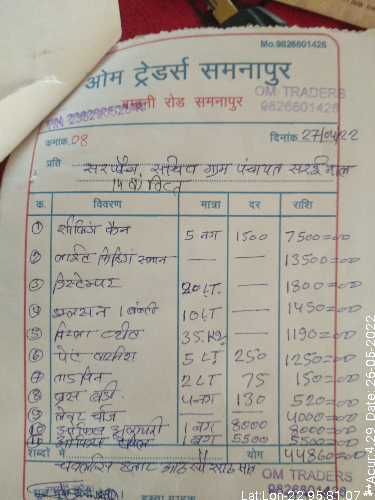 Mo.9826801426
ओम ट्रेडर्स समनापुर
OM TRADERS
बजनी रोड समनापुर
9826801426
क्रमांक 08 दिनांक 27/04/22
प्रति सरपंच, सचिव ग्राम पंचायत सरईमाल
क. विवरण मात्रा दर राशि
① सीलिंग फैन 5 नग 1500 7500=00
② लाईट फिटिंग समान — — 13500=00
③ डिस्टेम्पर 20 LT. — 1800=00
④ 10 LT — 1450=00
⑤ 35 Kg — 1190=00
⑥ पेंट वारनिश 5 LT 250 1250=00
⑦ तारपिन 2 LT 75 150=00
⑧ 4 नग 130 520=00
⑨ 4000=00
10 आलमारी 1 नग 8000 8000=00
11 ऑफिस टेबल 1 नग 5500 5500=00
शब्दों में योग 44860=00
OM TRADERS
9826801426
Lat,Lon-22.95:81.07
*Acur:4.29 Date:26-05-2022